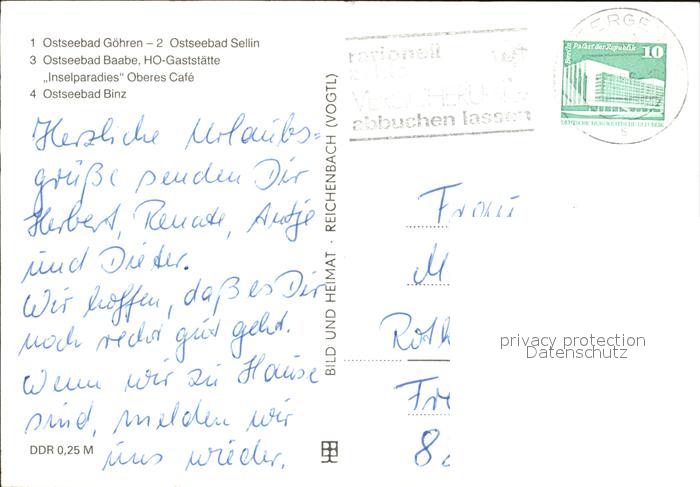 1 Ostseebad Göhren – 2 Ostseebad Sellin
3 Ostseebad Baabe, HO-Gaststätte
„Inselparadies“ Oberes Café
4 Ostseebad Binz
Herzliche Urlaubs=
grüße senden Dir
Herbert, Renate, Antje
und Dieter.
Wir hoffen, daß es Dir
noch recht gut geht.
Wenn wir zu Hause
sind, melden wir
uns wieder.
DDR 0,25 M
BILD UND HEIMAT · REICHENBACH (VOGTL)
rationell
abbuchen lassen
BERGEN
Berlin Palast der Republik 10
DEUTSCHE DEMOKRATISCHE REPUBLIK
Frau
M
Roth
Fre
8
privacy protection
Datenschutz